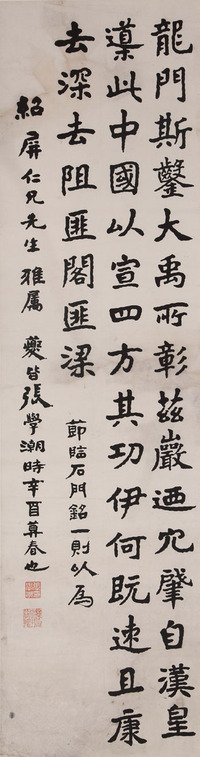 龍門斯鑿大禹所彰茲巖迺穴肇自漢皇
導此中國以宣四方其功伊何既速且康
去深去阻匪閣匪梁 節臨石門銘一則以為
紹屏仁兄先生雅屬 夔皆張學潮時辛酉暮春也